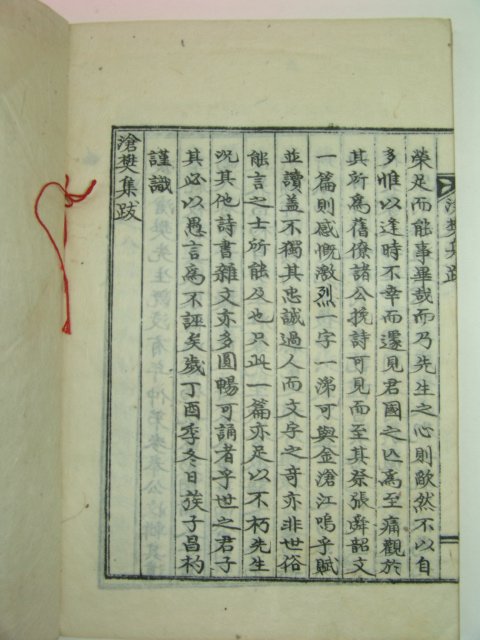 滄樊集跋
榮足而能事畢哉而乃先生之心則歉然不以自
多惟以逢時不幸而遽見君國之亡爲至痛觀於
其所爲舊僚諸公挽詩可見而至其祭張舜韶文
一篇則感慨激烈一字一涕可與金滄江嗚乎賦
並讀盖不獨其忠誠過人而文字之奇亦非世俗
能言之士所能及也只此一篇亦足以不朽先生
况其他詩書雜文亦多圓暢可誦者乎世之君子
其必以愚言爲不誣矣歲丁酉季冬日族子昌杓
謹識
滄樊集跋